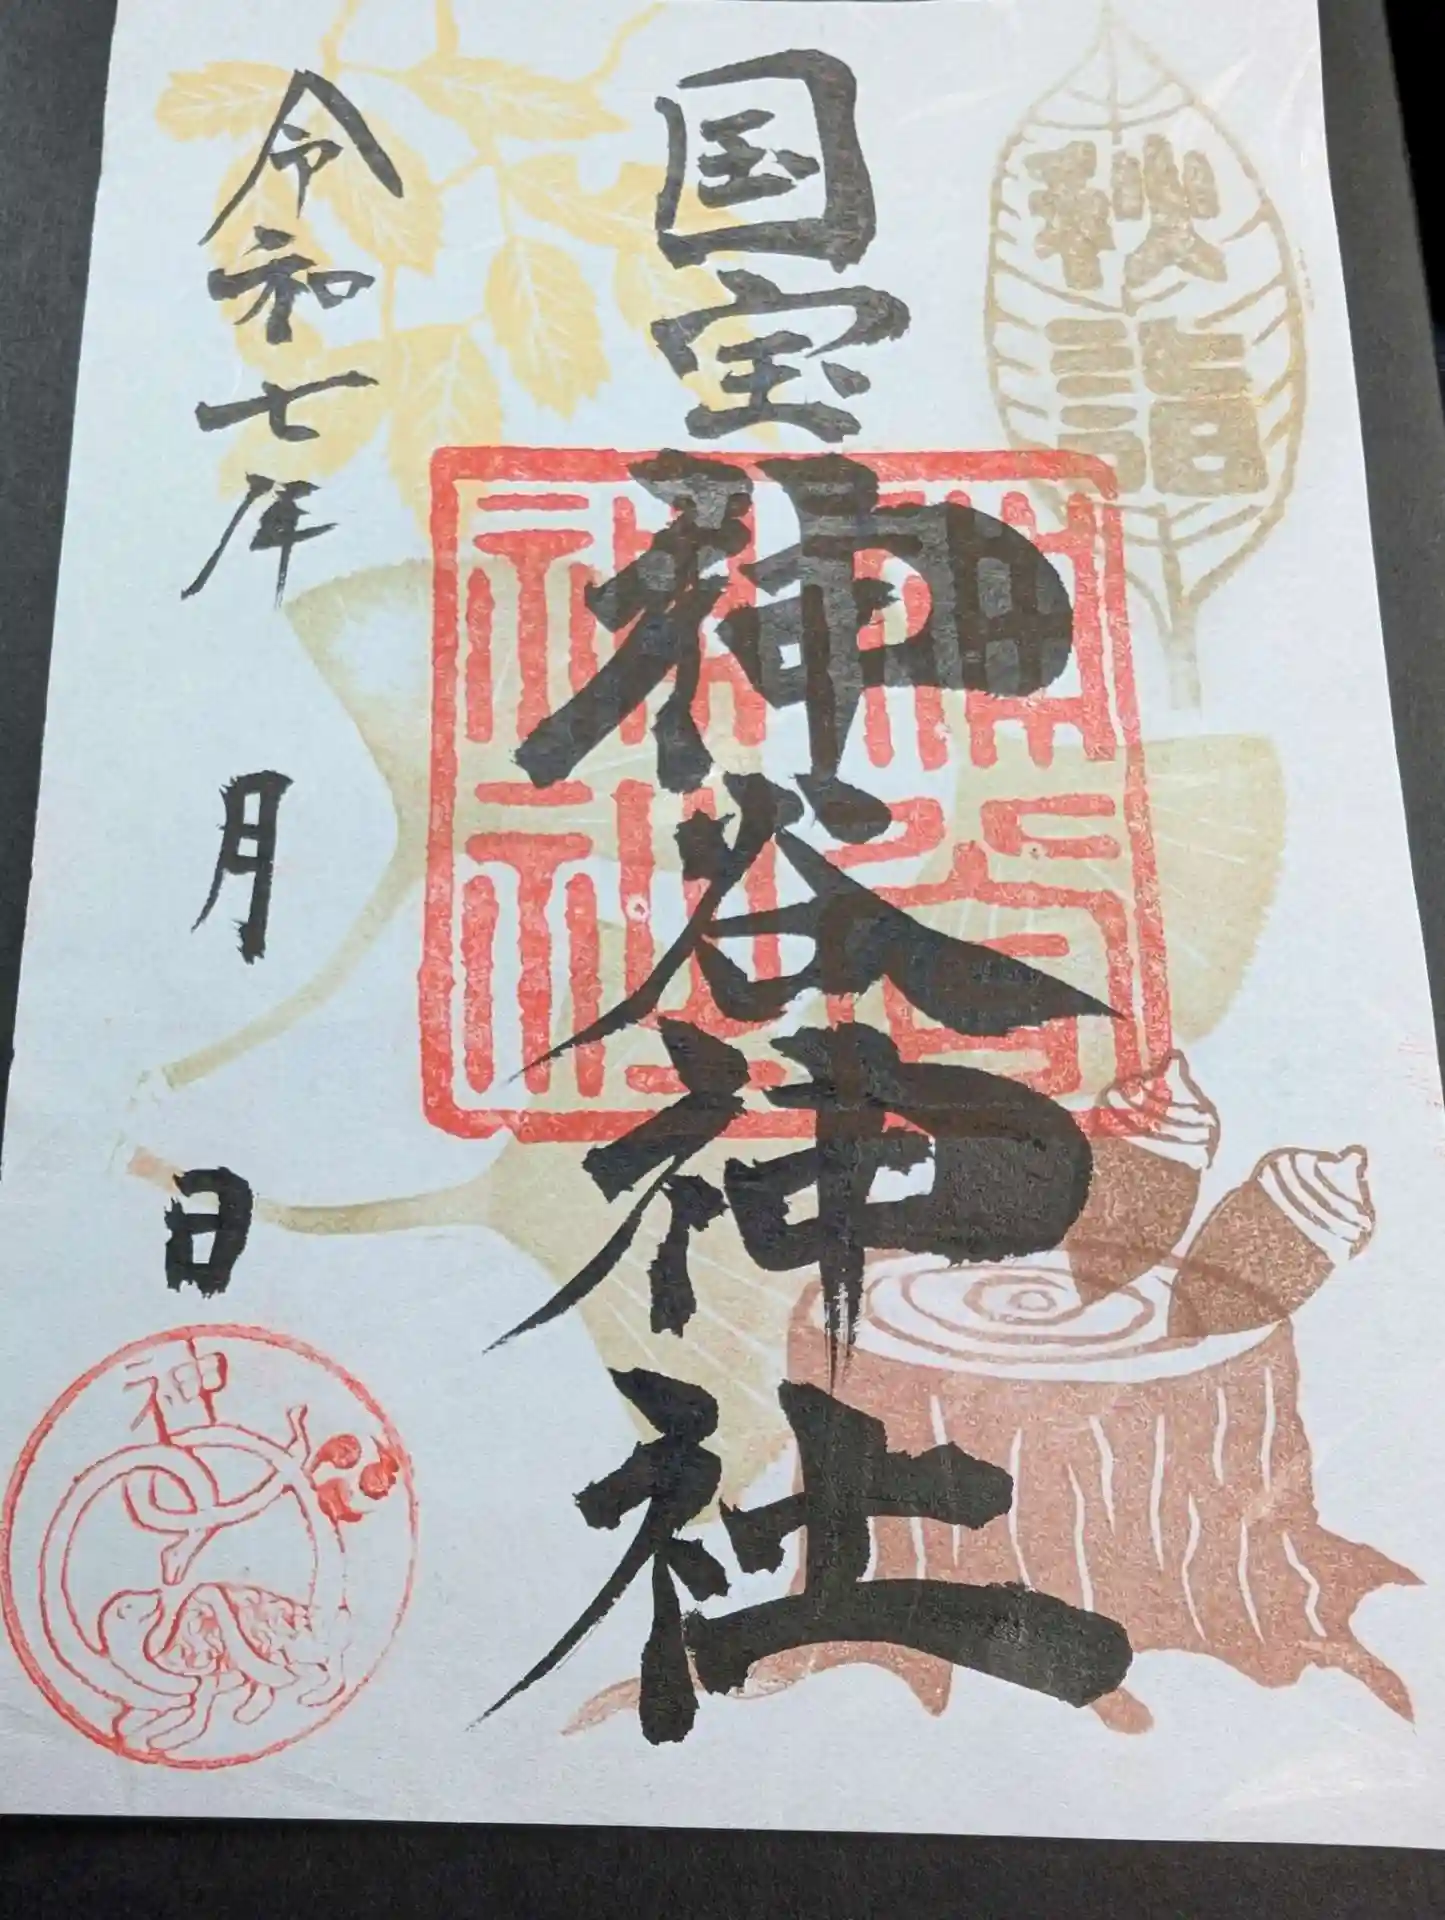 秋詣
国宝神谷神社
神谷神社
令和七年
月
日
神